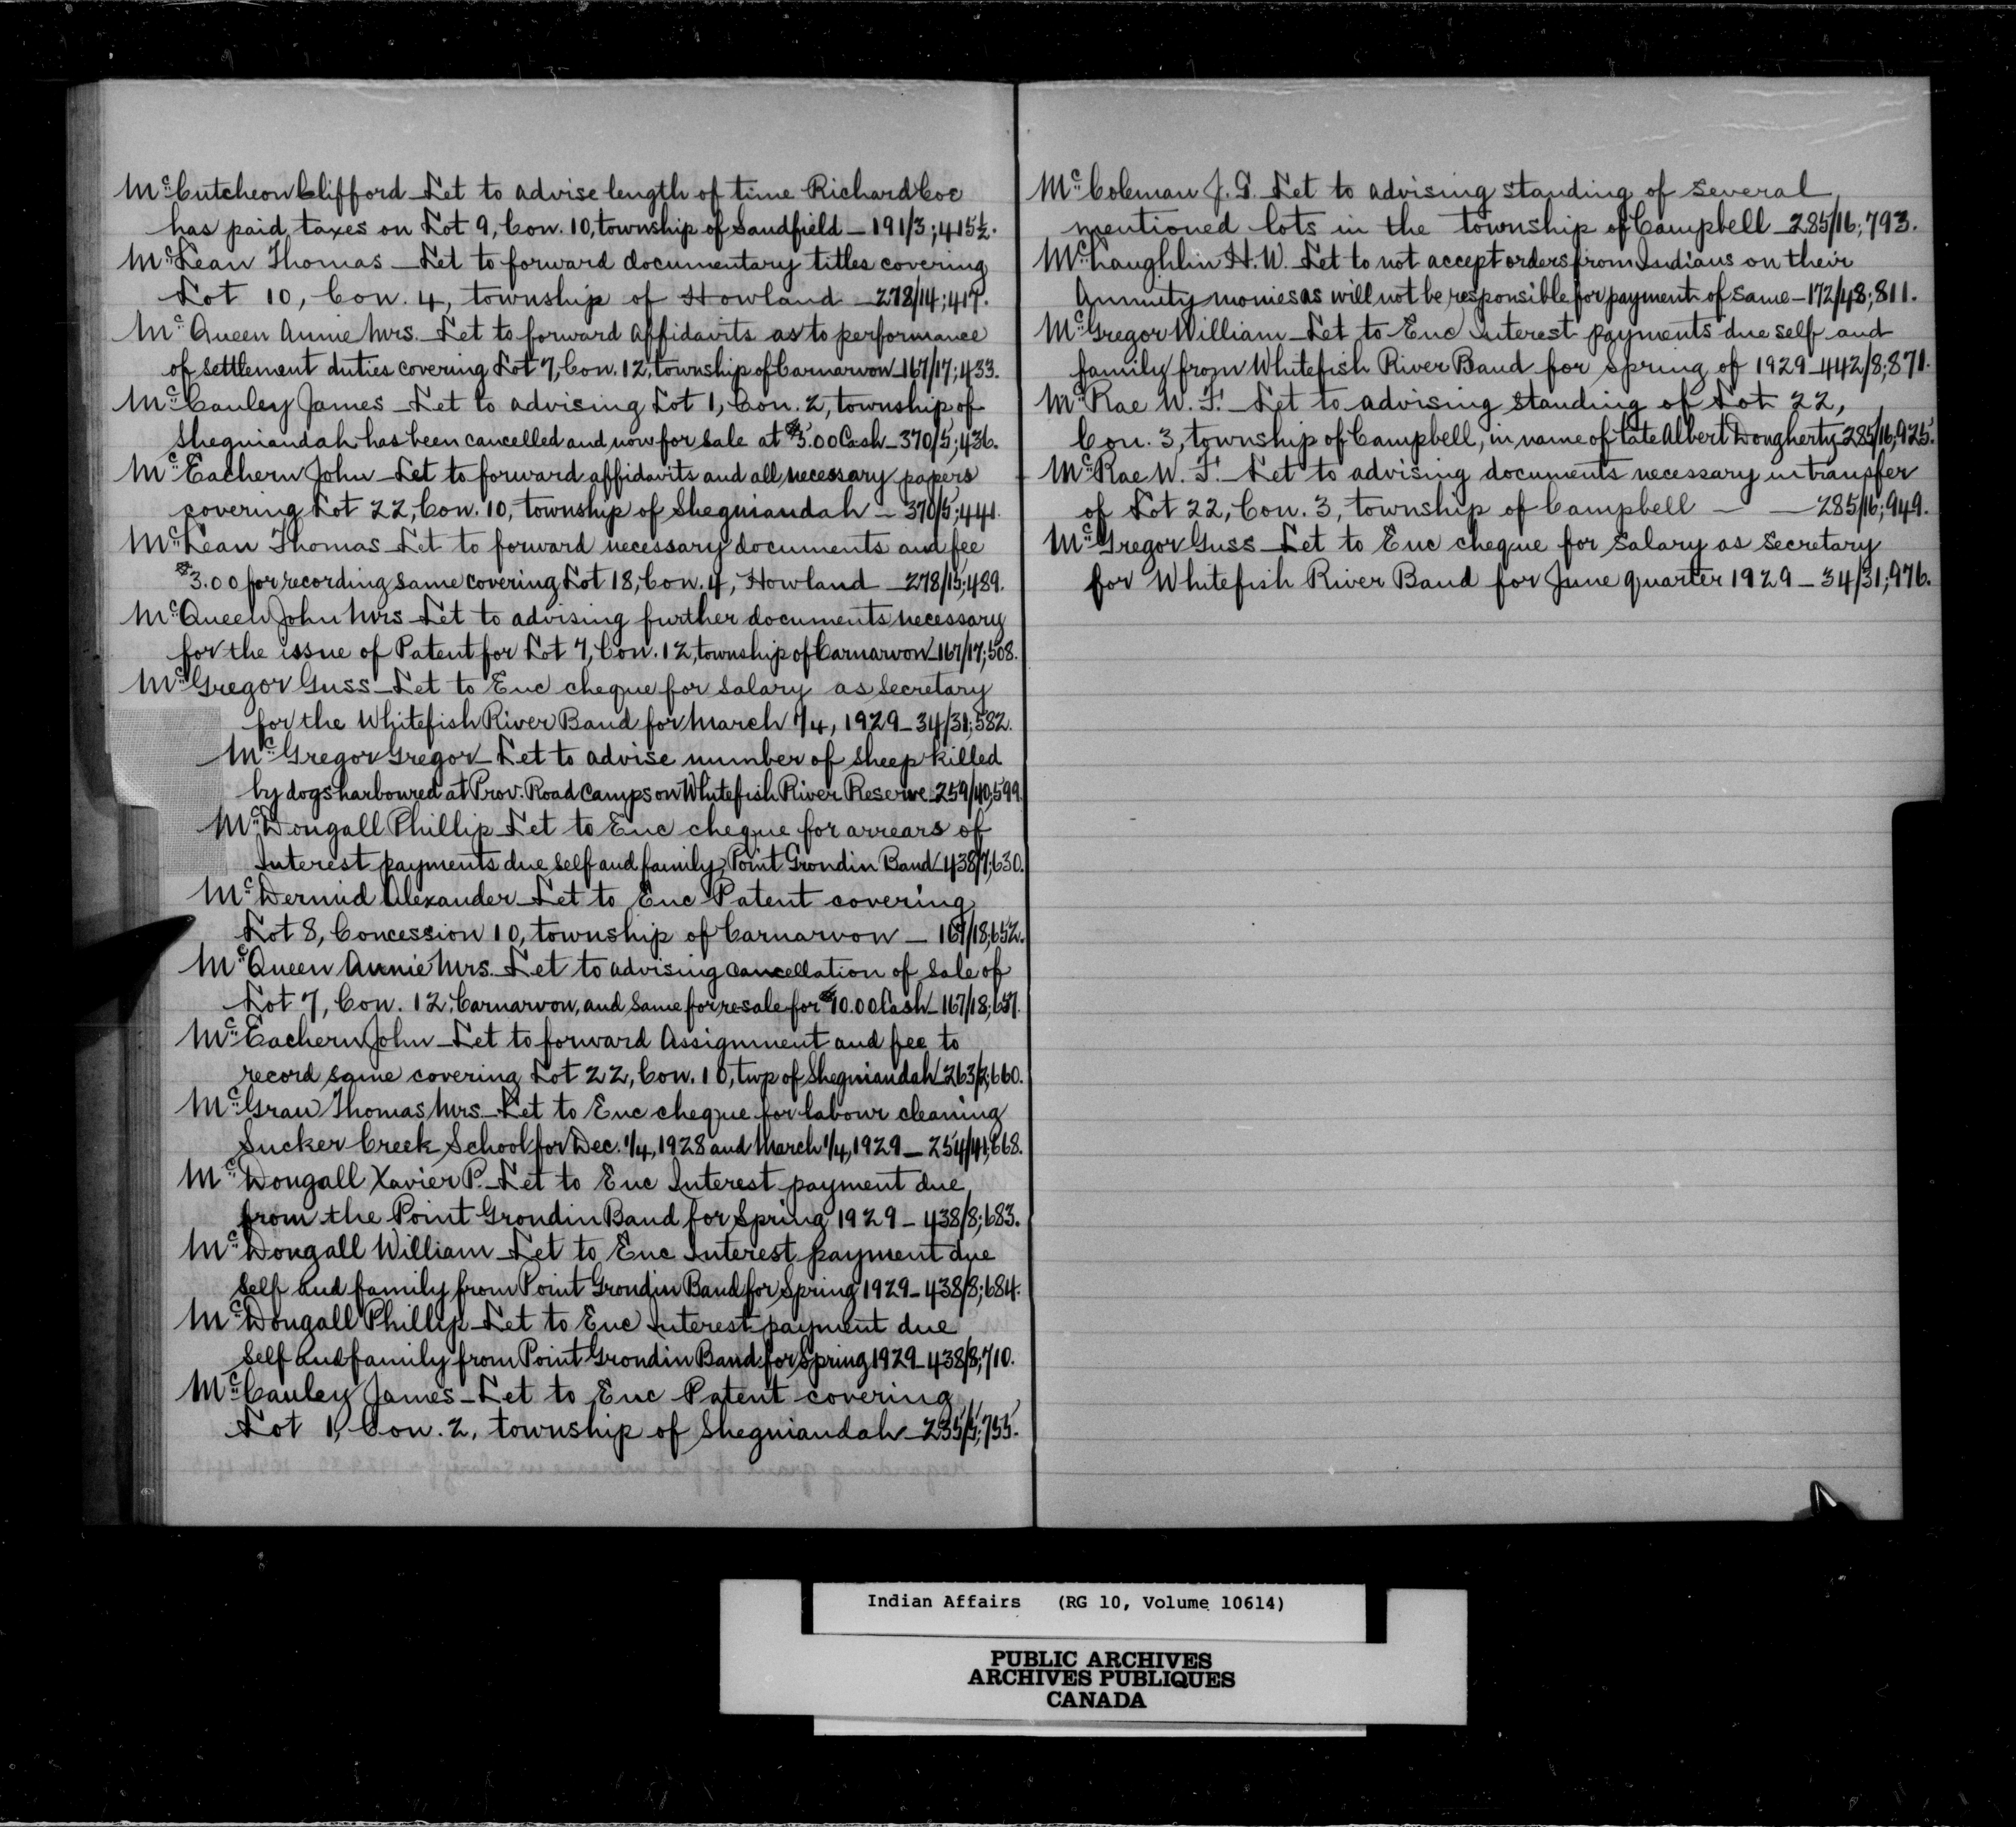 McCutcheon Clifford – Let to advise length of time Richard Coe
has paid taxes on Lot 9, Con. 10, township of Sandfield – 191/3; 415½.
McLean Thomas – Let to forward documentary titles covering
Lot 10, Con. 4, township of Howland – 278/14; 417.
McQueen Annie Mrs. – Let to forward affidavits as to performance
of settlement duties covering Lot 7, Con. 12, township of Carnarvon – 167/17; 433.
McCauley James – Let to advising Lot 1, Con. 2, township of
Sheguiandah has been cancelled and now for sale at $5.00 Cash – 370/5; 436.
McEachern John – Let to forward affidavits and all necessary papers
covering Lot 22, Con. 10, township of Sheguiandah – 370/5; 441.
McLean Thomas – Let to forward necessary documents and fee
$3.00 for recording same covering Lot 18, Con. 4, Howland – 278/15; 489.
McQueen John Mrs – Let to advising further documents necessary
for the issue of Patent for Lot 7, Con. 12, township of Carnarvon – 167/17; 508.
McGregor Guss – Let to Enc cheque for salary as secretary
for the Whitefish River Band for March 1/4, 1929 – 34/31; 582.
McGregor Gregor – Let to advise number of sheep killed
by dogs harboured at Prov. Road Camps on Whitefish River Reserve – 259/40; 599.
McDougall Phillip – Let to Enc cheque for arrears of
Interest payments due self and family, Point Grondin Band – 438/7; 630.
McDermid Alexander – Let to Enc Patent covering
Lot 8, Concession 10, township of Carnarvon – 167/18; 652.
McQueen Annie Mrs. – Let to advising cancellation of sale of
Lot 7, Con. 12, Carnarvon, and same for resale for $10.00 Cash – 167/18; 657.
McEachern John – Let to forward Assignment and fee to
record same covering Lot 22, Con. 10, twp of Sheguiandah – 263/2; 660.
McGraw Thomas Mrs. – Let to Enc cheque for labour cleaning
Sucker Creek School for Dec. 1/4, 1928 and March 1/4, 1929 – 254/41; 668.
McDougall Xavier P. – Let to Enc Interest payment due
from the Point Grondin Band for Spring 1929 – 438/8; 683.
McDougall William – Let to Enc Interest payment due
self and family from Point Grondin Band for Spring 1929 – 438/8; 684.
McDougall Phillip – Let to Enc Interest payment due
self and family from Point Grondin Band for Spring 1929 – 438/8; 710.
McCauley James – Let to Enc Patent covering
Lot 1, Con. 2, township of Sheguiandah – 235/5; 755.
McColeman J. G. Let to advising standing of several
mentioned lots in the township of Campbell – 285/16; 793.
McLaughlin H. W. – Let to not accept orders from Indians on their
Annuity monies as will not be responsible for payment of same – 172/48; 811.
McGregor William – Let to Enc Interest payments due self and
family from Whitefish River Band for Spring of 1929 – 442/8; 871.
McRae W. F. – Let to advising standing of Lot 22,
Con. 3, township of Campbell, in name of late Albert Dougherty – 285/16; 925.
McRae W. F. – Let to advising documents necessary in transfer
of Lot 22, Con. 3, township of Campbell – – 285/16; 949.
McGregor Guss – Let to Enc cheque for salary as secretary
for Whitefish River Band for June quarter 1929 – 34/31; 976.
Indian Affairs (RG 10, Volume 10614)
PUBLIC ARCHIVES
ARCHIVES PUBLIQUES
CANADA